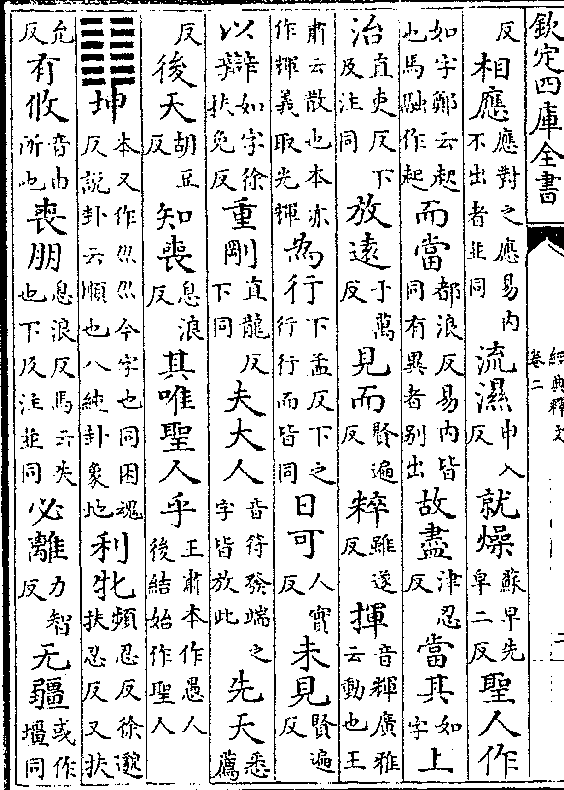 欽定四庫全書
經典釋文
卷二
反相應應對之應易内不出者並同流濕申入反就燥蘇早先皁二反聖人作
如字鄭云起也馬融作起而當都浪反易内皆同有異者别出故盡津忍反當其如字上
治直吏反下及注同放遠于萬反見而賢遍反粹雖遂反揮音輝廣雅云動也王
肅云散也本亦作輝義取光輝為行下孟反下之行行而皆同日可人實反未見賢遍反
以辯如字徐扶免反重剛直龍反下同夫大人音符發端之字皆放此先天悉薦
反後天胡豆反知喪息浪反其唯聖人乎王肅本作愚人後結始作聖人
䷁坤本又作巛巛今字也同困魂反說卦云順也八純卦象地利牝頻忍反徐邈扶忍反又扶
允反有攸音由所也喪朋息浪反馬云失也下及注並同必離力智反无疆或作壃同